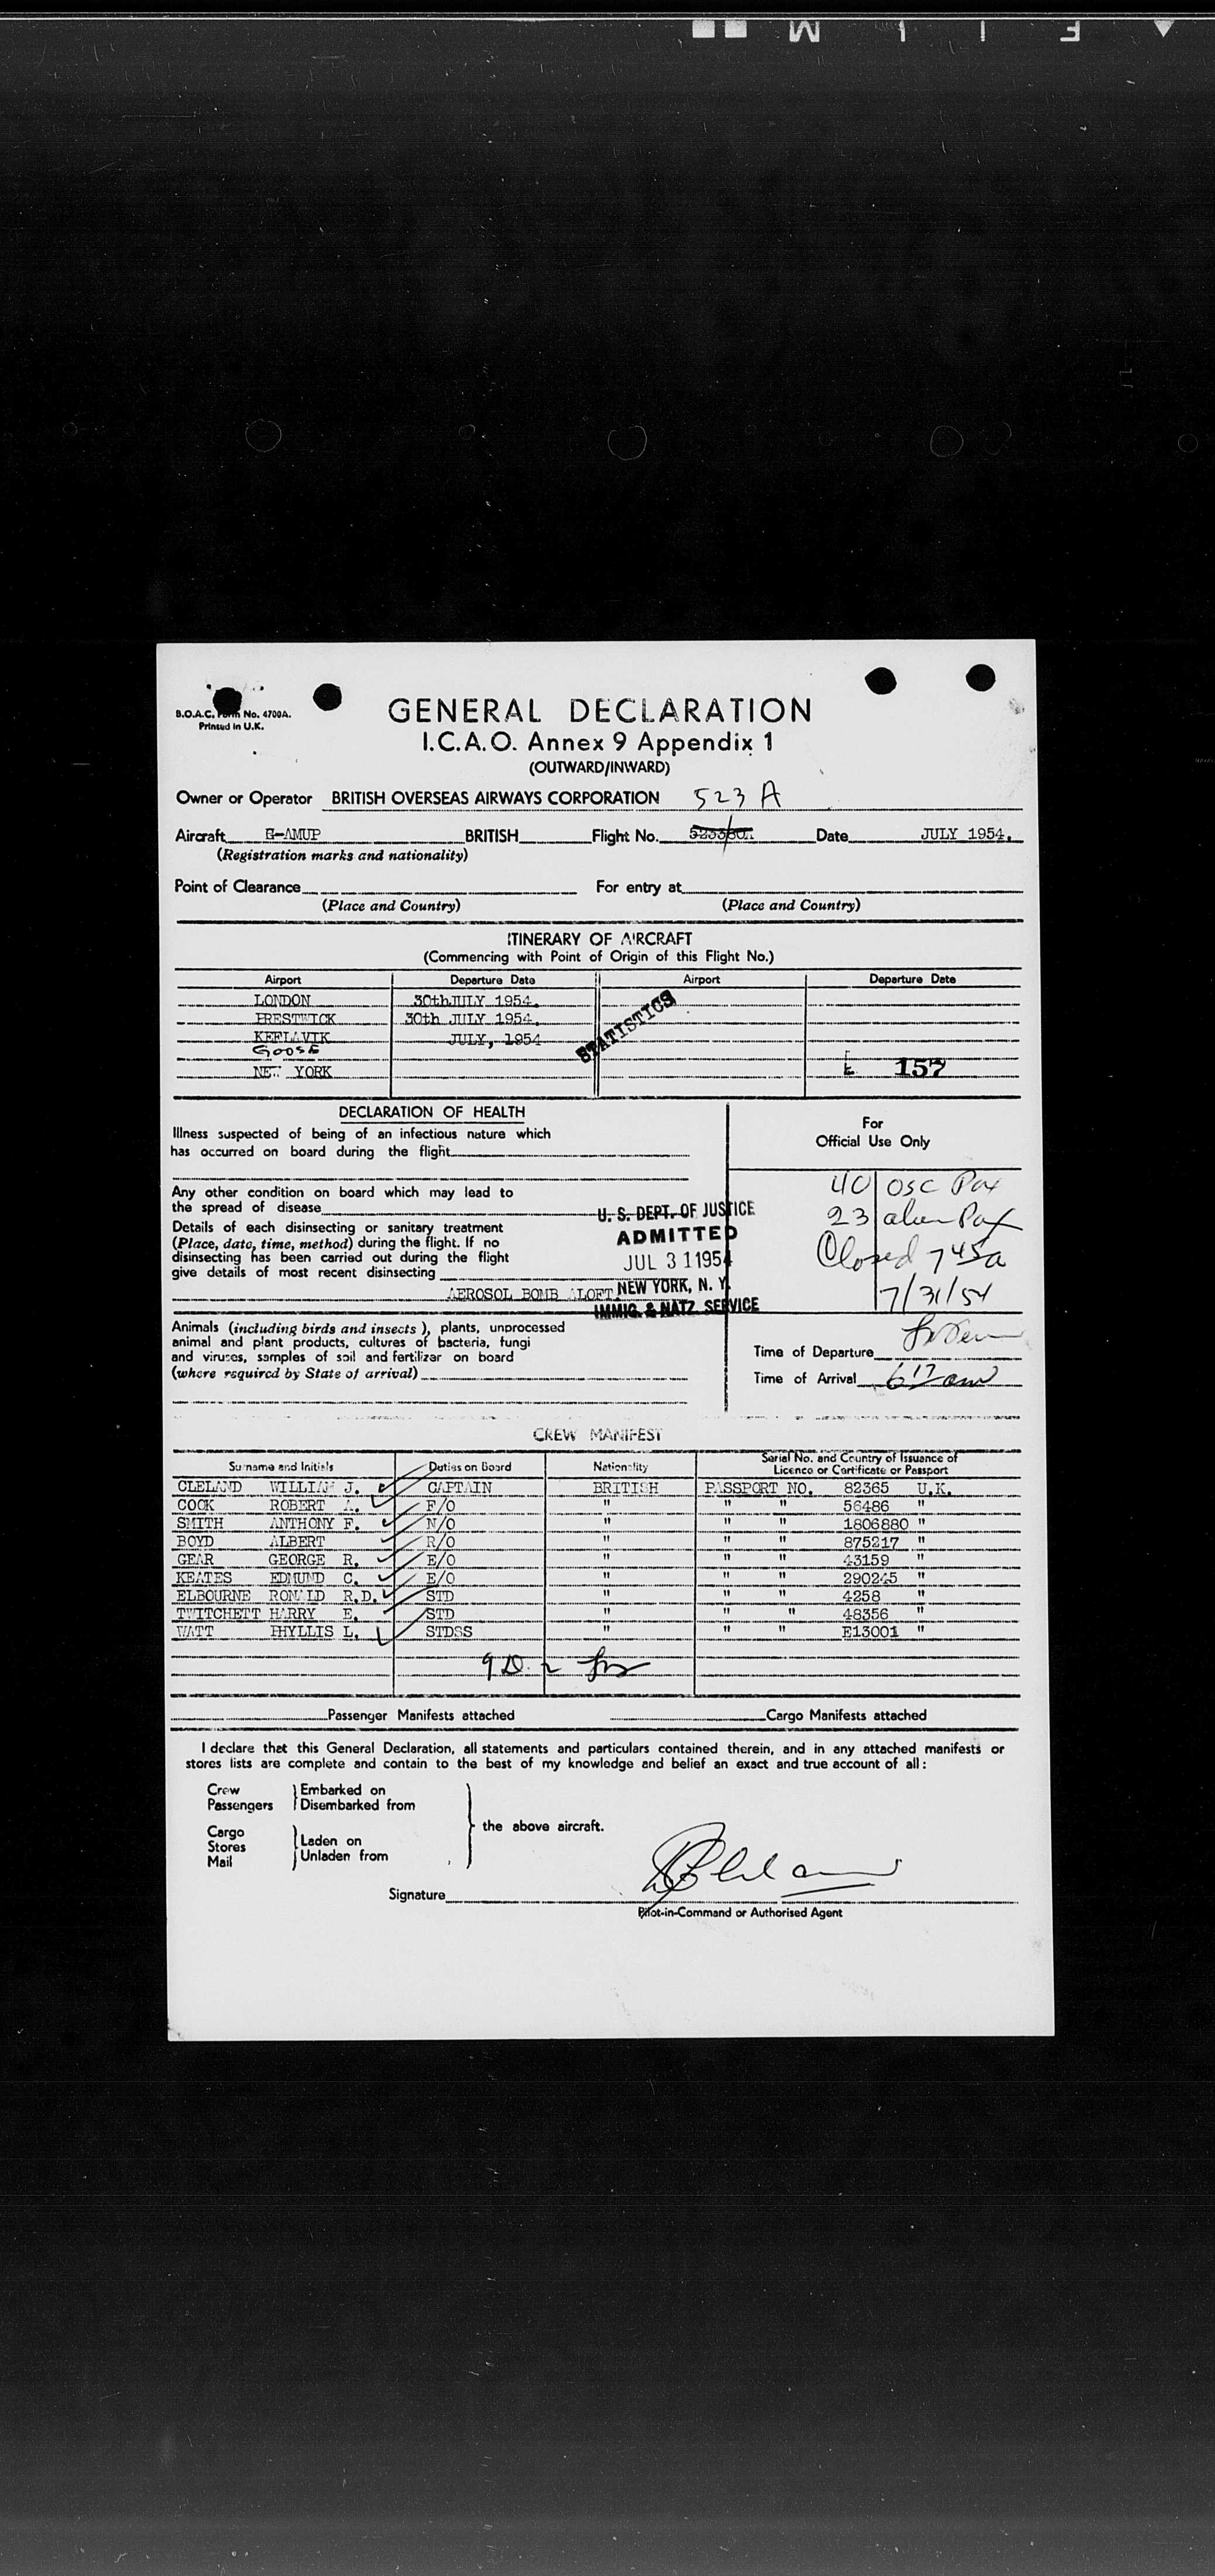 F I L M
B.O.A.C. Form No. 4700A.
Printed in U.K.
GENERAL DECLARATION
I.C.A.O. Annex 9 Appendix 1
(OUTWARD/INWARD)
Owner or Operator BRITISH OVERSEAS AIRWAYS CORPORATION 523 A
Aircraft G-AMUP BRITISH Flight No. Date JULY 1954.
(Registration marks and nationality)
Point of Clearance For entry at
(Place and Country) (Place and Country)
ITINERARY OF AIRCRAFT
(Commencing with Point of Origin of this Flight No.)
Airport Departure Date Airport Departure Date
LONDON 30thJULY 1954.
PRESTWICK 30th JULY 1954.
KEFLAVIK JULY, 1954
GOOSE
NEW YORK
STATISTICS
157
DECLARATION OF HEALTH
Illness suspected of being of an infectious nature which
has occurred on board during the flight
Any other condition on board which may lead to
the spread of disease
Details of each disinsecting or sanitary treatment
(Place, date, time, method) during the flight. If no
disinsecting has been carried out during the flight
give details of most recent disinsecting
AEROSOL BOMB ALOFT
U. S. DEPT. OF JUSTICE
ADMITTED
JUL 31 1954
NEW YORK, N. Y.
IMMIG. & NATZ. SERVICE
For
Official Use Only
40 osc Pax
23 alien Pax
Closed 745a
7/31/54
Animals (including birds and insects), plants, unprocessed
animal and plant products, cultures of bacteria, fungi
and viruses, samples of soil and fertilizer on board
(where required by State of arrival)
Time of Departure
Time of Arrival 617 am
CREW MANIFEST
Surname and Initials Duties on Board Nationality Serial No. and Country of Issuance of Licence or Certificate or Passport
CLELAND WILLIAM J. CAPTAIN BRITISH PASSPORT NO. 82365 U.K.
COOK ROBERT A. F/O " " " 56486 "
SMITH ANTHONY F. N/O " " " 1806880 "
BOYD ALBERT R/O " " " 875217 "
GEAR GEORGE R. E/O " " " 43159 "
KEATES EDMUND C. E/O " " " 290245 "
ELBOURNE RONALD R.D. STD " " " 4258 "
TWITCHETT HARRY E. STD " " " 48356 "
WATT PHYLLIS L. STDSS " " " E13001 "
Passenger Manifests attached Cargo Manifests attached
I declare that this General Declaration, all statements and particulars contained therein, and in any attached manifests or
stores lists are complete and contain to the best of my knowledge and belief an exact and true account of all:
Crew Embarked on
Passengers Disembarked from
the above aircraft.
Cargo
Stores Laden on
Mail Unladen from
Signature
Pilot-in-Command or Authorised Agent